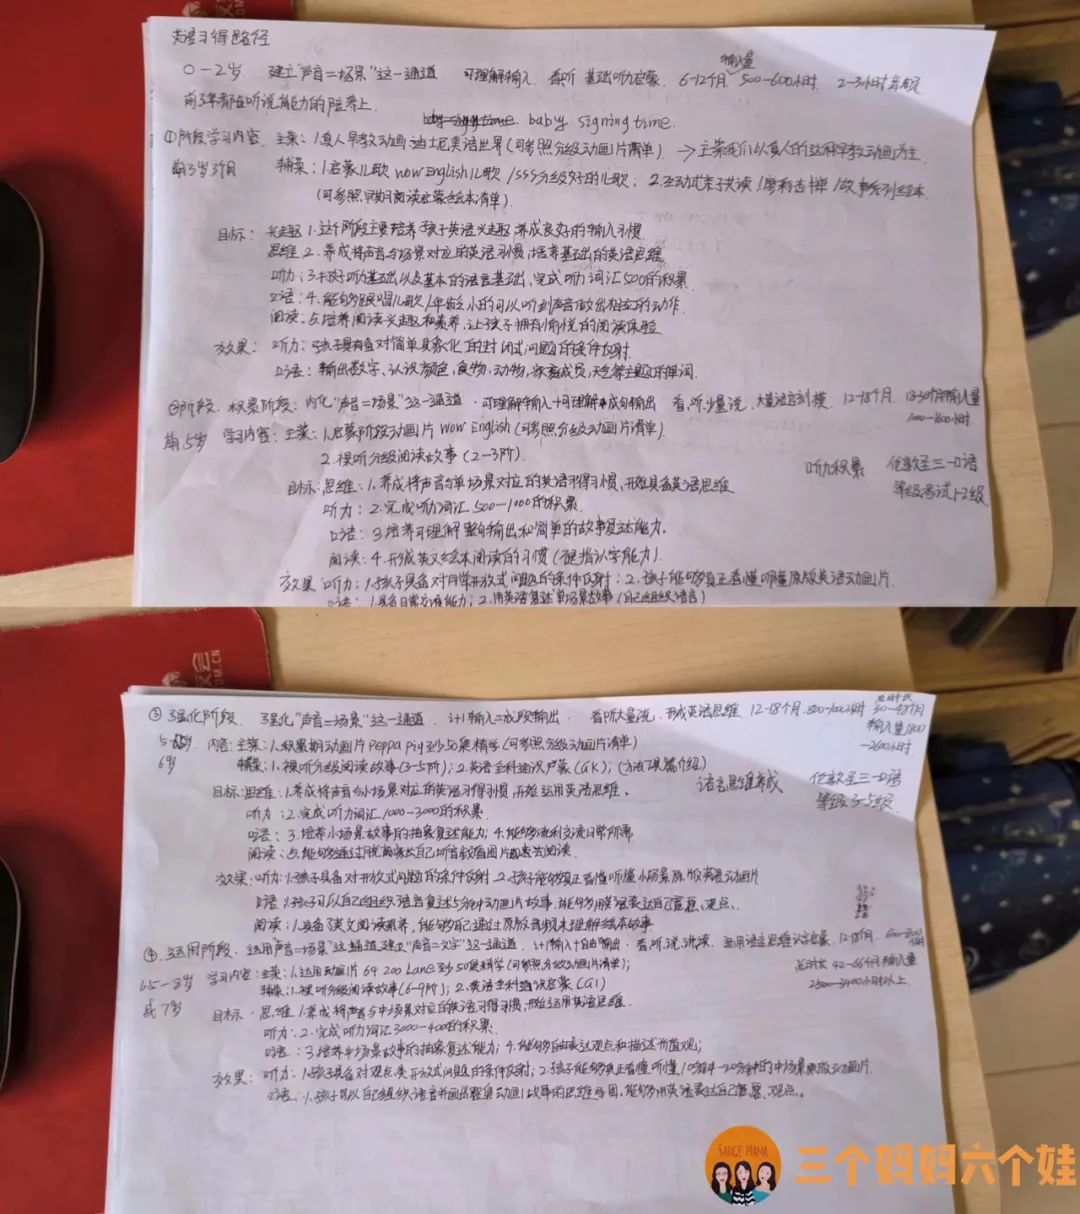 英语习得路径
0-2岁 建立"声音=场景"这一通道. 可理解输入. 看听 基础听力启蒙. 6-12个月 500-600小时. 2-3小时音频
输入量
前3年都在听说能力的培养上.
baby signing time.
①阶段学习内容. 主菜: 1.真人早教动画·迪士尼美语世界(可参照分级动画片清单) → 主菜我们以真人的这种早教动画为主.
萌3岁3个月 辅菜: 1.启蒙儿歌 wow English儿歌 /SSS分级好的儿歌; 2.互动式亲子共读 /廖彩杏书单 /故事系列绘本
(可参照早期阅读启蒙绘本清单).
目标: 兴趣 1.这个阶段主要培养孩子英语兴趣,养成良好的输入习惯
思维 2.养成将声音与场景对应的英语习惯,培养基础的英语思维
听力: 3.听力基础以及基本的语言基础,完成听力词汇500的积累
口语: 4.能够跟唱儿歌/年龄小的可以听到声音做出相应的动作
阅读: 5.培养阅读兴趣和素养,让孩子拥有愉悦的阅读体验
效果: 听力: 孩子具备对简单具象化的封闭式问题的条件反射.
口语: 输出数字、认识颜色,食物,动物,家庭成员,天气等主题的单词.
②阶段. 积累阶段: 内化"声音=场景"这一通道·可理解输入+可理解成句输出 看,听,少量说. 大量语言刺模. 12-18个月. 18-30个月输入量
1000-1600小时.
萌5岁 学习内容: 主菜: 1.启蒙阶段动画片 Wow English(可参照分级动画片清单).
2.视听分级阅读故事(2-3阶). 听力积累 伦敦圣三一口语
等级考试1-2级
目标: 思维: 1.养成将声音与单场景对应的英语习得习惯,开始具备英语思维
听力: 2.完成听力词汇500-1000的积累.
口语: 3.培养可理解整句输出和简单的故事复述能力.
阅读: 4.形成英文绘本阅读的习惯(不是指认字能力).
效果 听力: 1.孩子具备对日常开放式问题的条件反射; 2.孩子能够真正看懂听懂原版英语动画片.
口语: 1.具备日常交流能力; 2.用英语复述单场景故事(自己组织语言)
③强化阶段. 强化"声音=场景"这一通道. i+1输入=成段输出. 看听大量说. 形成英语思维 12-18个月. 800-1000小时
30-48个月
输入量1800
-2600小时.
5-6岁 内容: 主菜: 1.积累期动画片 Peppa Pig 到50集精学(可参照分级动画片清单)
6岁 辅菜: 1.视听分级阅读故事(3-5阶); 2.英语全科通识启蒙(GK);
语言思维养成 伦敦圣三一口语
等级3-5级
目标: 思维: 1.养成将声音与小场景对应的英语习得习惯 开始运用英语思维.
听力: 2.完成听力词汇1000-3000的积累.
口语: 3.培养小场景故事的抽象复述能力; 4.能够流利交流日常所需
效果: 听力: 1.孩子具备对开放式问题的条件反射. 2.孩子能够真正看懂听懂小场景原版英语动画片
口语: 1.孩子可以自己组织语言复述5分钟动画片故事,能够用英语表达自己意愿、观点.
阅读: 1.具备了英文阅读素养,能够自己通过原版音频来理解绘本故事.
④运用阶段. 运用声音=场景"这一通道,建立"声音=文字"这一通道. i+1输入+自由输出·看,听,说,讲读. 运用语言思维认字启蒙. 12-18个月.
总时长42-66个月输入量
6.5-8岁 学习内容: 主菜: 1.运用动画片 64 Zoo Lane 到50集精学(可参照分级动画片清单);
或7岁 辅菜: 1.视听分级阅读故事(6-9阶); 2.英语全科通识启蒙(G1)
目标: 思维: 1.养成将声音与中场景对应的英语习得习惯,开始运用英语思维.
听力: 2.完成听力词汇3000-4000的积累.
口语: 3.培养中场景故事的抽象复述能力; 4.能够自由表达观点和描述价值观;
效果: 听力: 1.孩子具备对观点类开放式问题的条件反射; 2.孩子能够真正看懂听懂10分钟-20分钟的中场景原版动画片.
口语: 1.孩子可以自己组织语言并画出整集动画故事的思维导图,能够用英语表达自己意愿、观点.
SANGE MAMA
三个妈妈六个娃